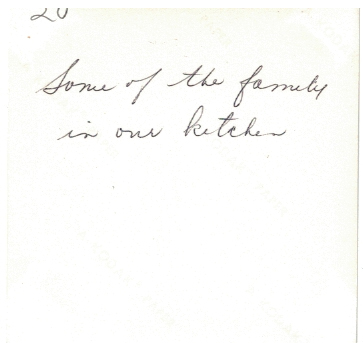 20
Some of the family
in our kitchen